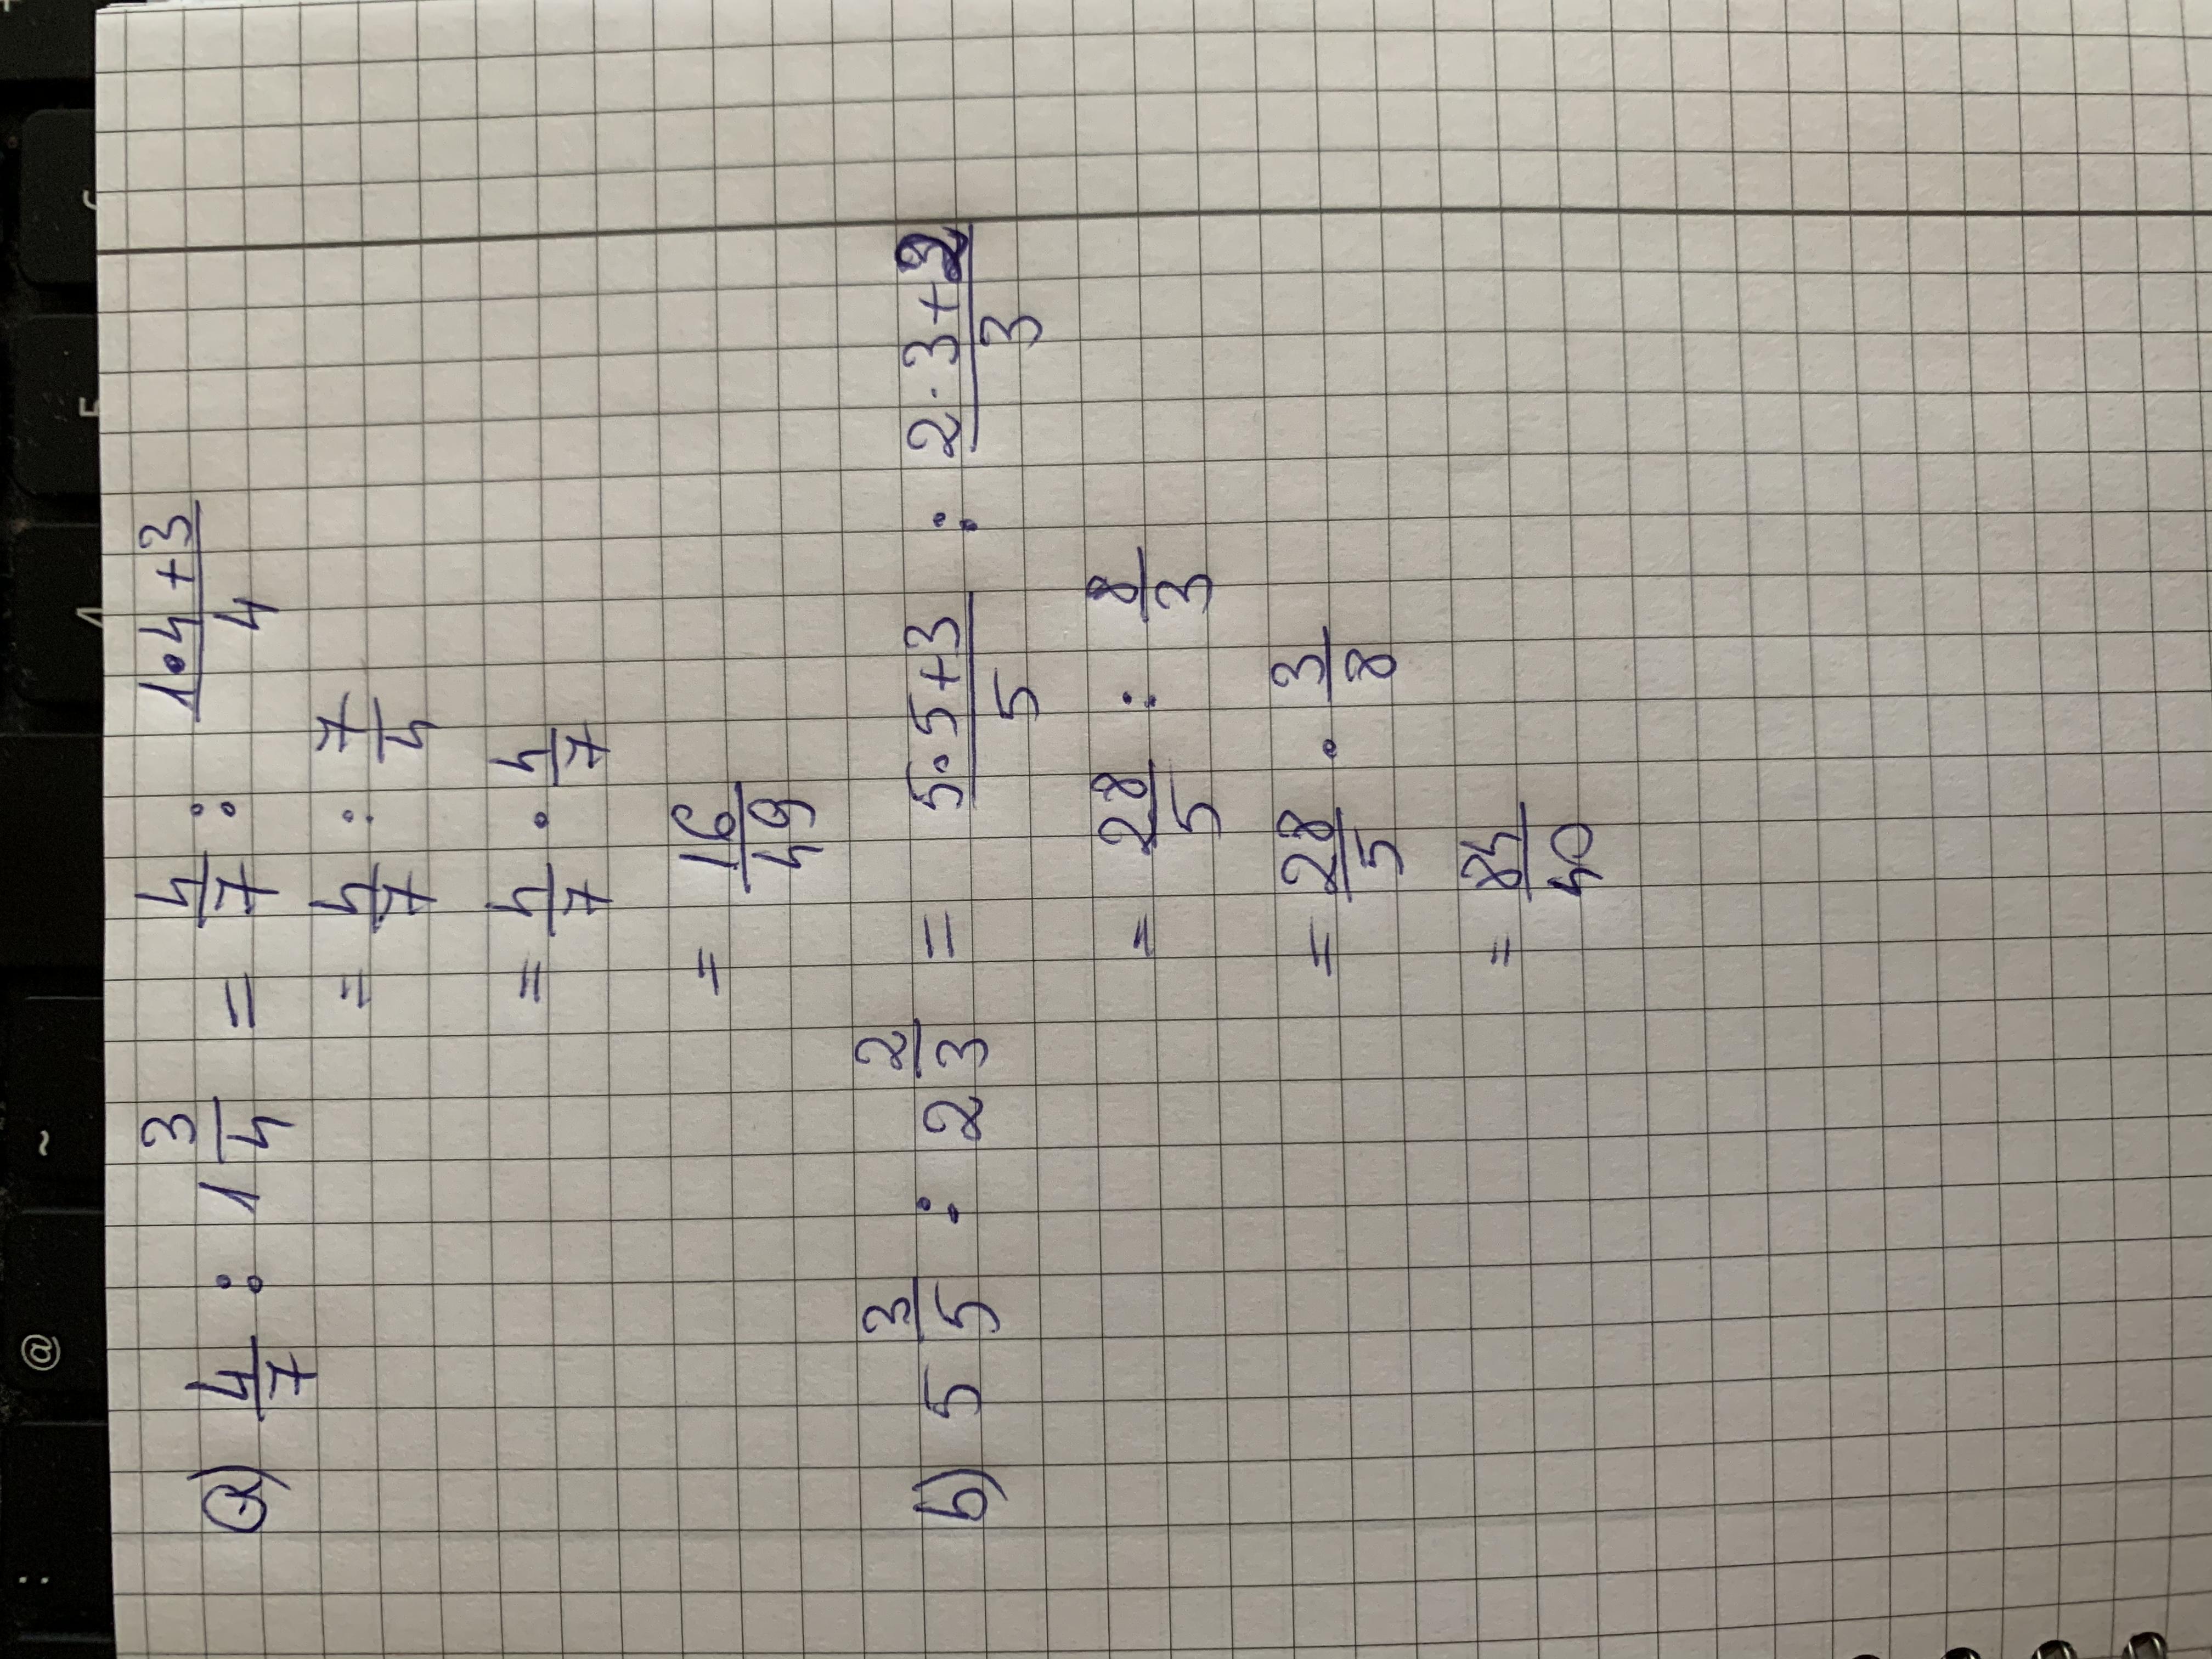 a) 4/7 : 1 3/4 = 4/7 : 1·4+3/4
= 4/7 : 7/4
= 4/7 · 4/7
= 16/49
b) 5 3/5 : 2 2/3 = 5·5+3/5 : 2·3+2/3
= 28/5 : 8/3
= 28/5 · 3/8
= 84/40
: @ ~